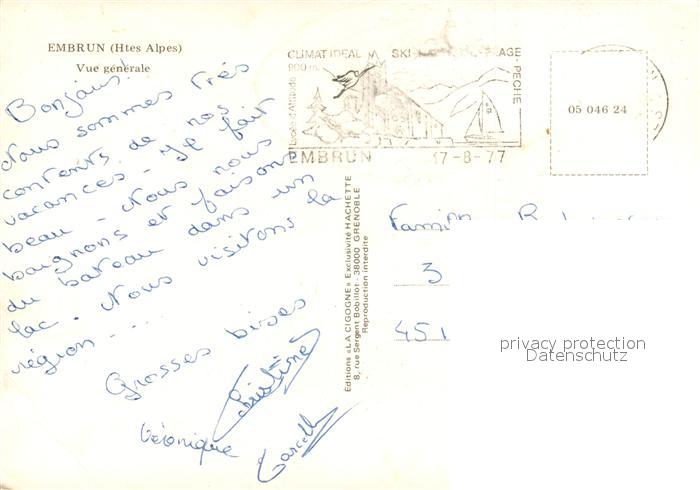 EMBRUN (Htes Alpes)
Vue générale
Bonjour!
Nous sommes très
contents de nos
vacances - Il fait
beau - Nous nous
baignons et faisons
du bateau dans un
lac. Nous visitons la
région - ...
Grosses bises
Christine
Véronique
CLIMAT IDEAL
900 m
SKI
PLAGE
- PECHE
EMBRUN
17-8-77
05 046 24
Editions «LA CIGOGNE» Exclusivité HACHETTE
8, rue Sergent Bobillot - 38000 GRENOBLE
Reproduction interdite
3
451
privacy protection
Datenschutz